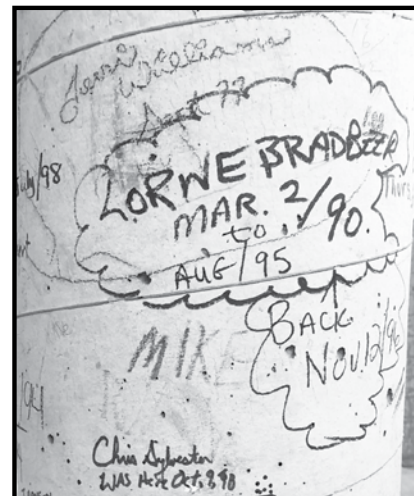 Terri
Williams
Sept 77
July/98
LORNE BRADBEER
MAR. 2/90.
to
AUG/95
Thurs
BACK
NOV.12/96
MIKE
/94
Chris Sylvester
WAS Here Oct, 8, 98